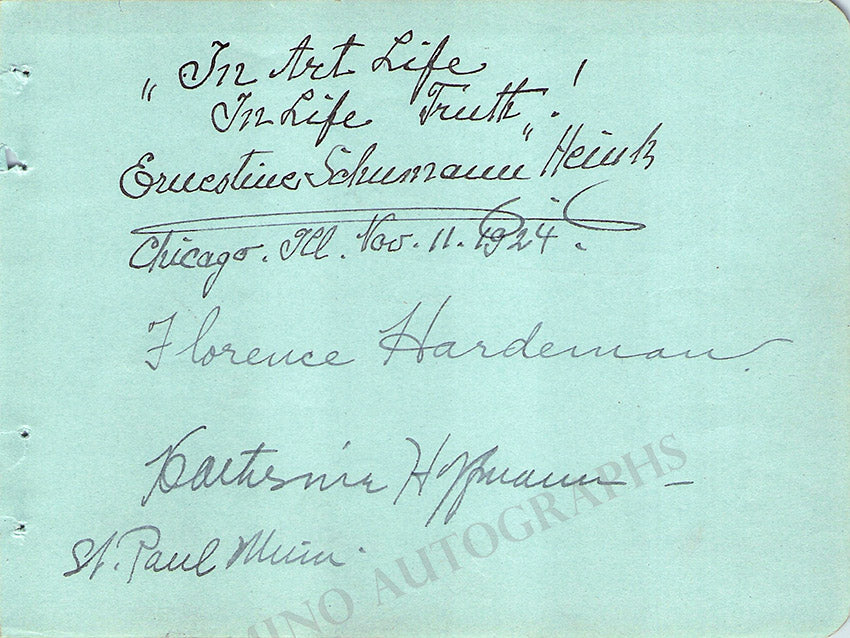 „In Art Life
In Life Truth“!
Ernestine Schumann Heink
Chicago. Ill. Nov. 11. 1924.
Florence Hardeman
Katherine Hoffmann -
St. Paul Minn.
MINO AUTOGRAPHS